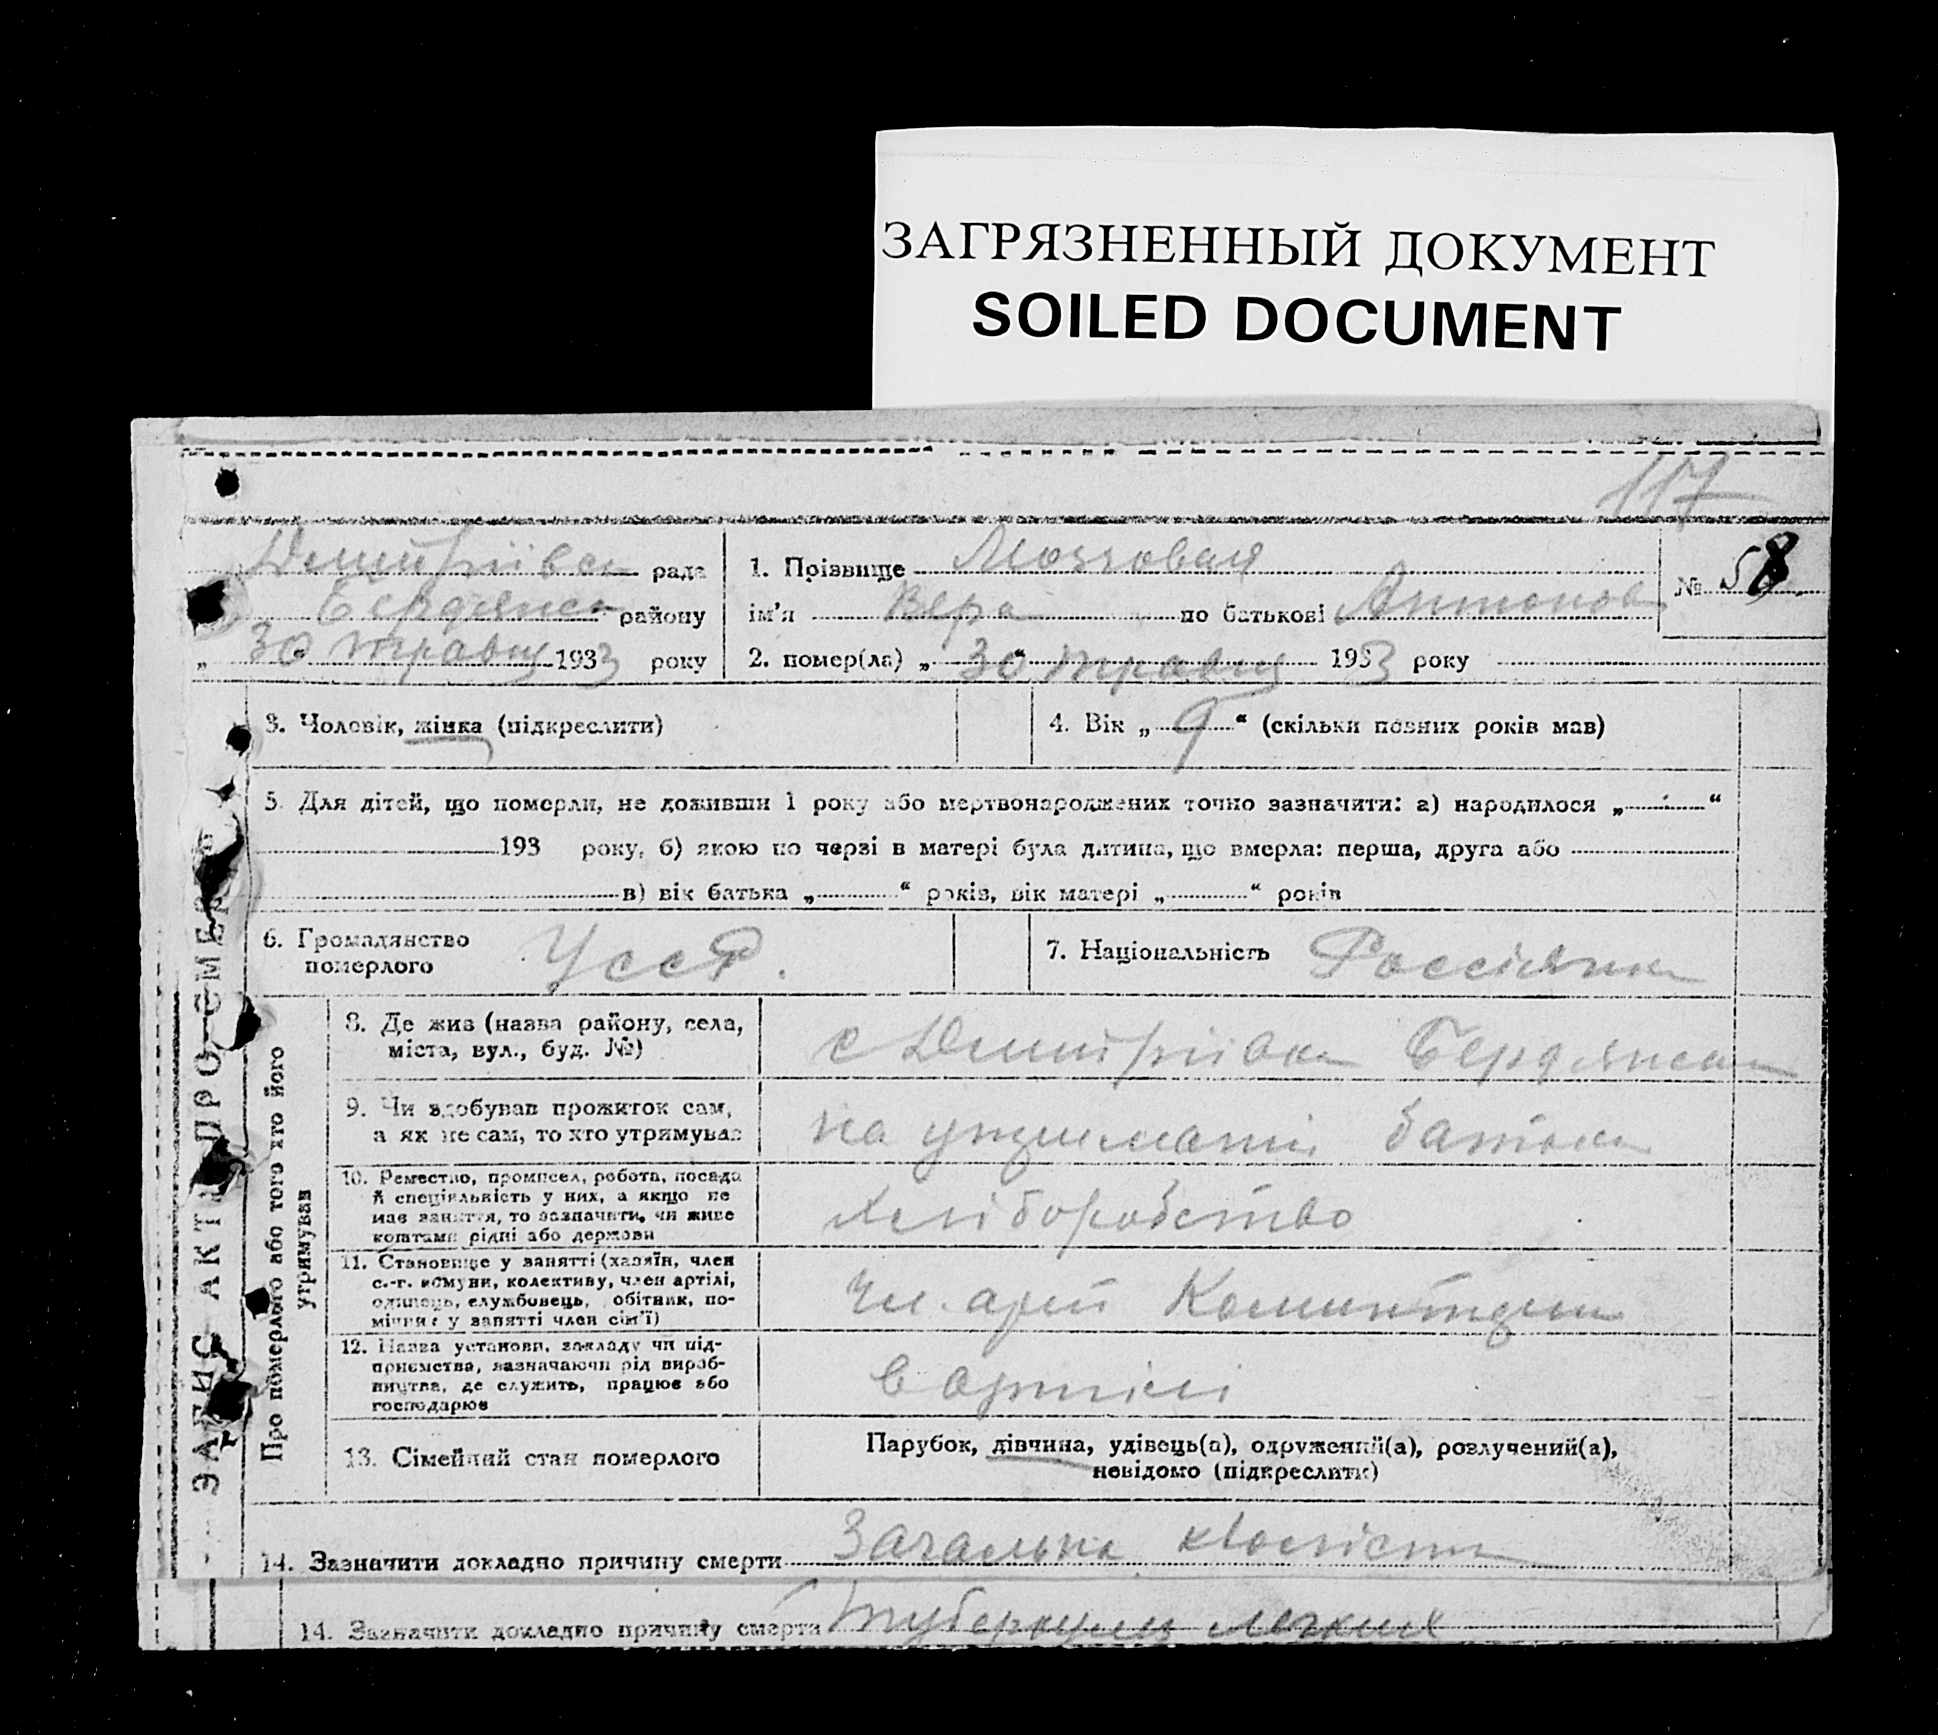 ЗАГРЯЗНЕННЫЙ ДОКУМЕНТ
SOILED DOCUMENT
117
Дмитрівка рада
Бердянськ району
„ 30 “ травня 1933 року
1. Прізвище Мозговая
ім’я Вера по батькові Антонов
№ 58
2. помер(ла) „ 30 “ травня 1933 року
3. Чоловік, жінка (підкреслити)
4. Вік „ 9 “ (скільки повних років мав)
5. Для дітей, що померли, не доживши 1 року або мертвонароджених точно зазначити: а) народилося „ “
193 року, б) якою по черзі в матері була дитина, що вмерла: перша, друга або
в) вік батька „ “ років, вік матері „ “ років
6. Громадянство
померлого УССР.
7. Національність Россіянка
ЗАПИС АКТ ПРО СМЕР
Про померлого або того хто його
утримував
8. Де жив (назва району, села,
міста, вул., буд. №)
с Дмитрівка Бердянськ
9. Чи здобував прожиток сам,
а як не сам, то хто утримував
на утриманні батька
10. Ремество, промисел, робота, посада
й спеціяльність у них, а якщо не
має заняття, то зазначити, чи живе
коштами рідні або держави
хліборобство
11. Становище у занятті (хазяїн, член
с.-г. комуни, колективу, член артілі,
одинець, службовець, обітник, по-
мічник у занятті член сім’ї)
Чл. артії Комінтерн
12. Назва установи, закладу чи під-
приємства, зазначаючи рід вироб-
ництва, де служить, працює або
господарює
в артілі
13. Сімейний стан померлого
Парубок, дівчина, удівець(а), одружений(а), розлучений(а),
невідомо (підкреслити)
14. Зазначити докладно причину смерти Загальна кволість
14. Зазначити докладно причину смерти туберкульоз легких